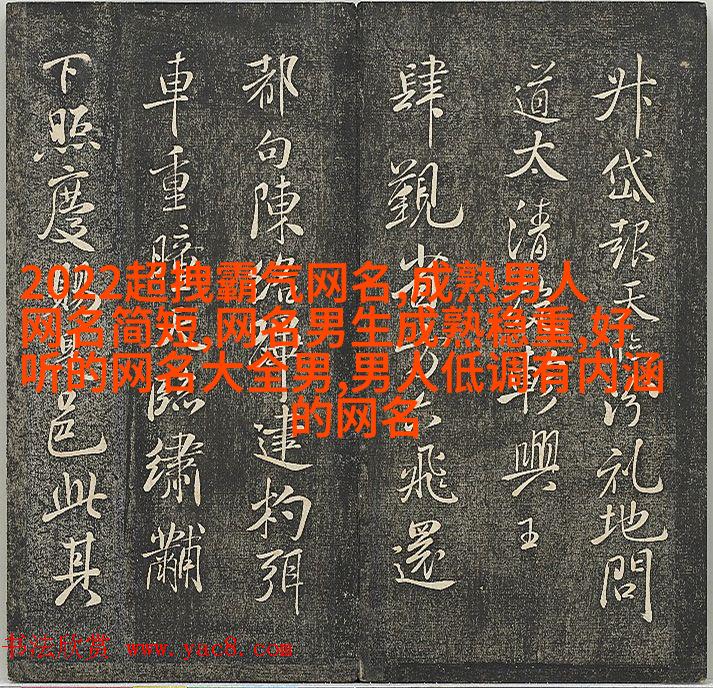 升岱報天臨汾礼地問
道太清興王
肆觀省方六飛還
都句陳絡建杓弭
車重瞳臨繡黼
下照慶賜邑此其
2022超拽霸气网名,成熟男人
网名简短,网名男生成熟稳重,好
听的网名大全男,男人低调有内涵
的网名
书法欣赏 www.yac8.com